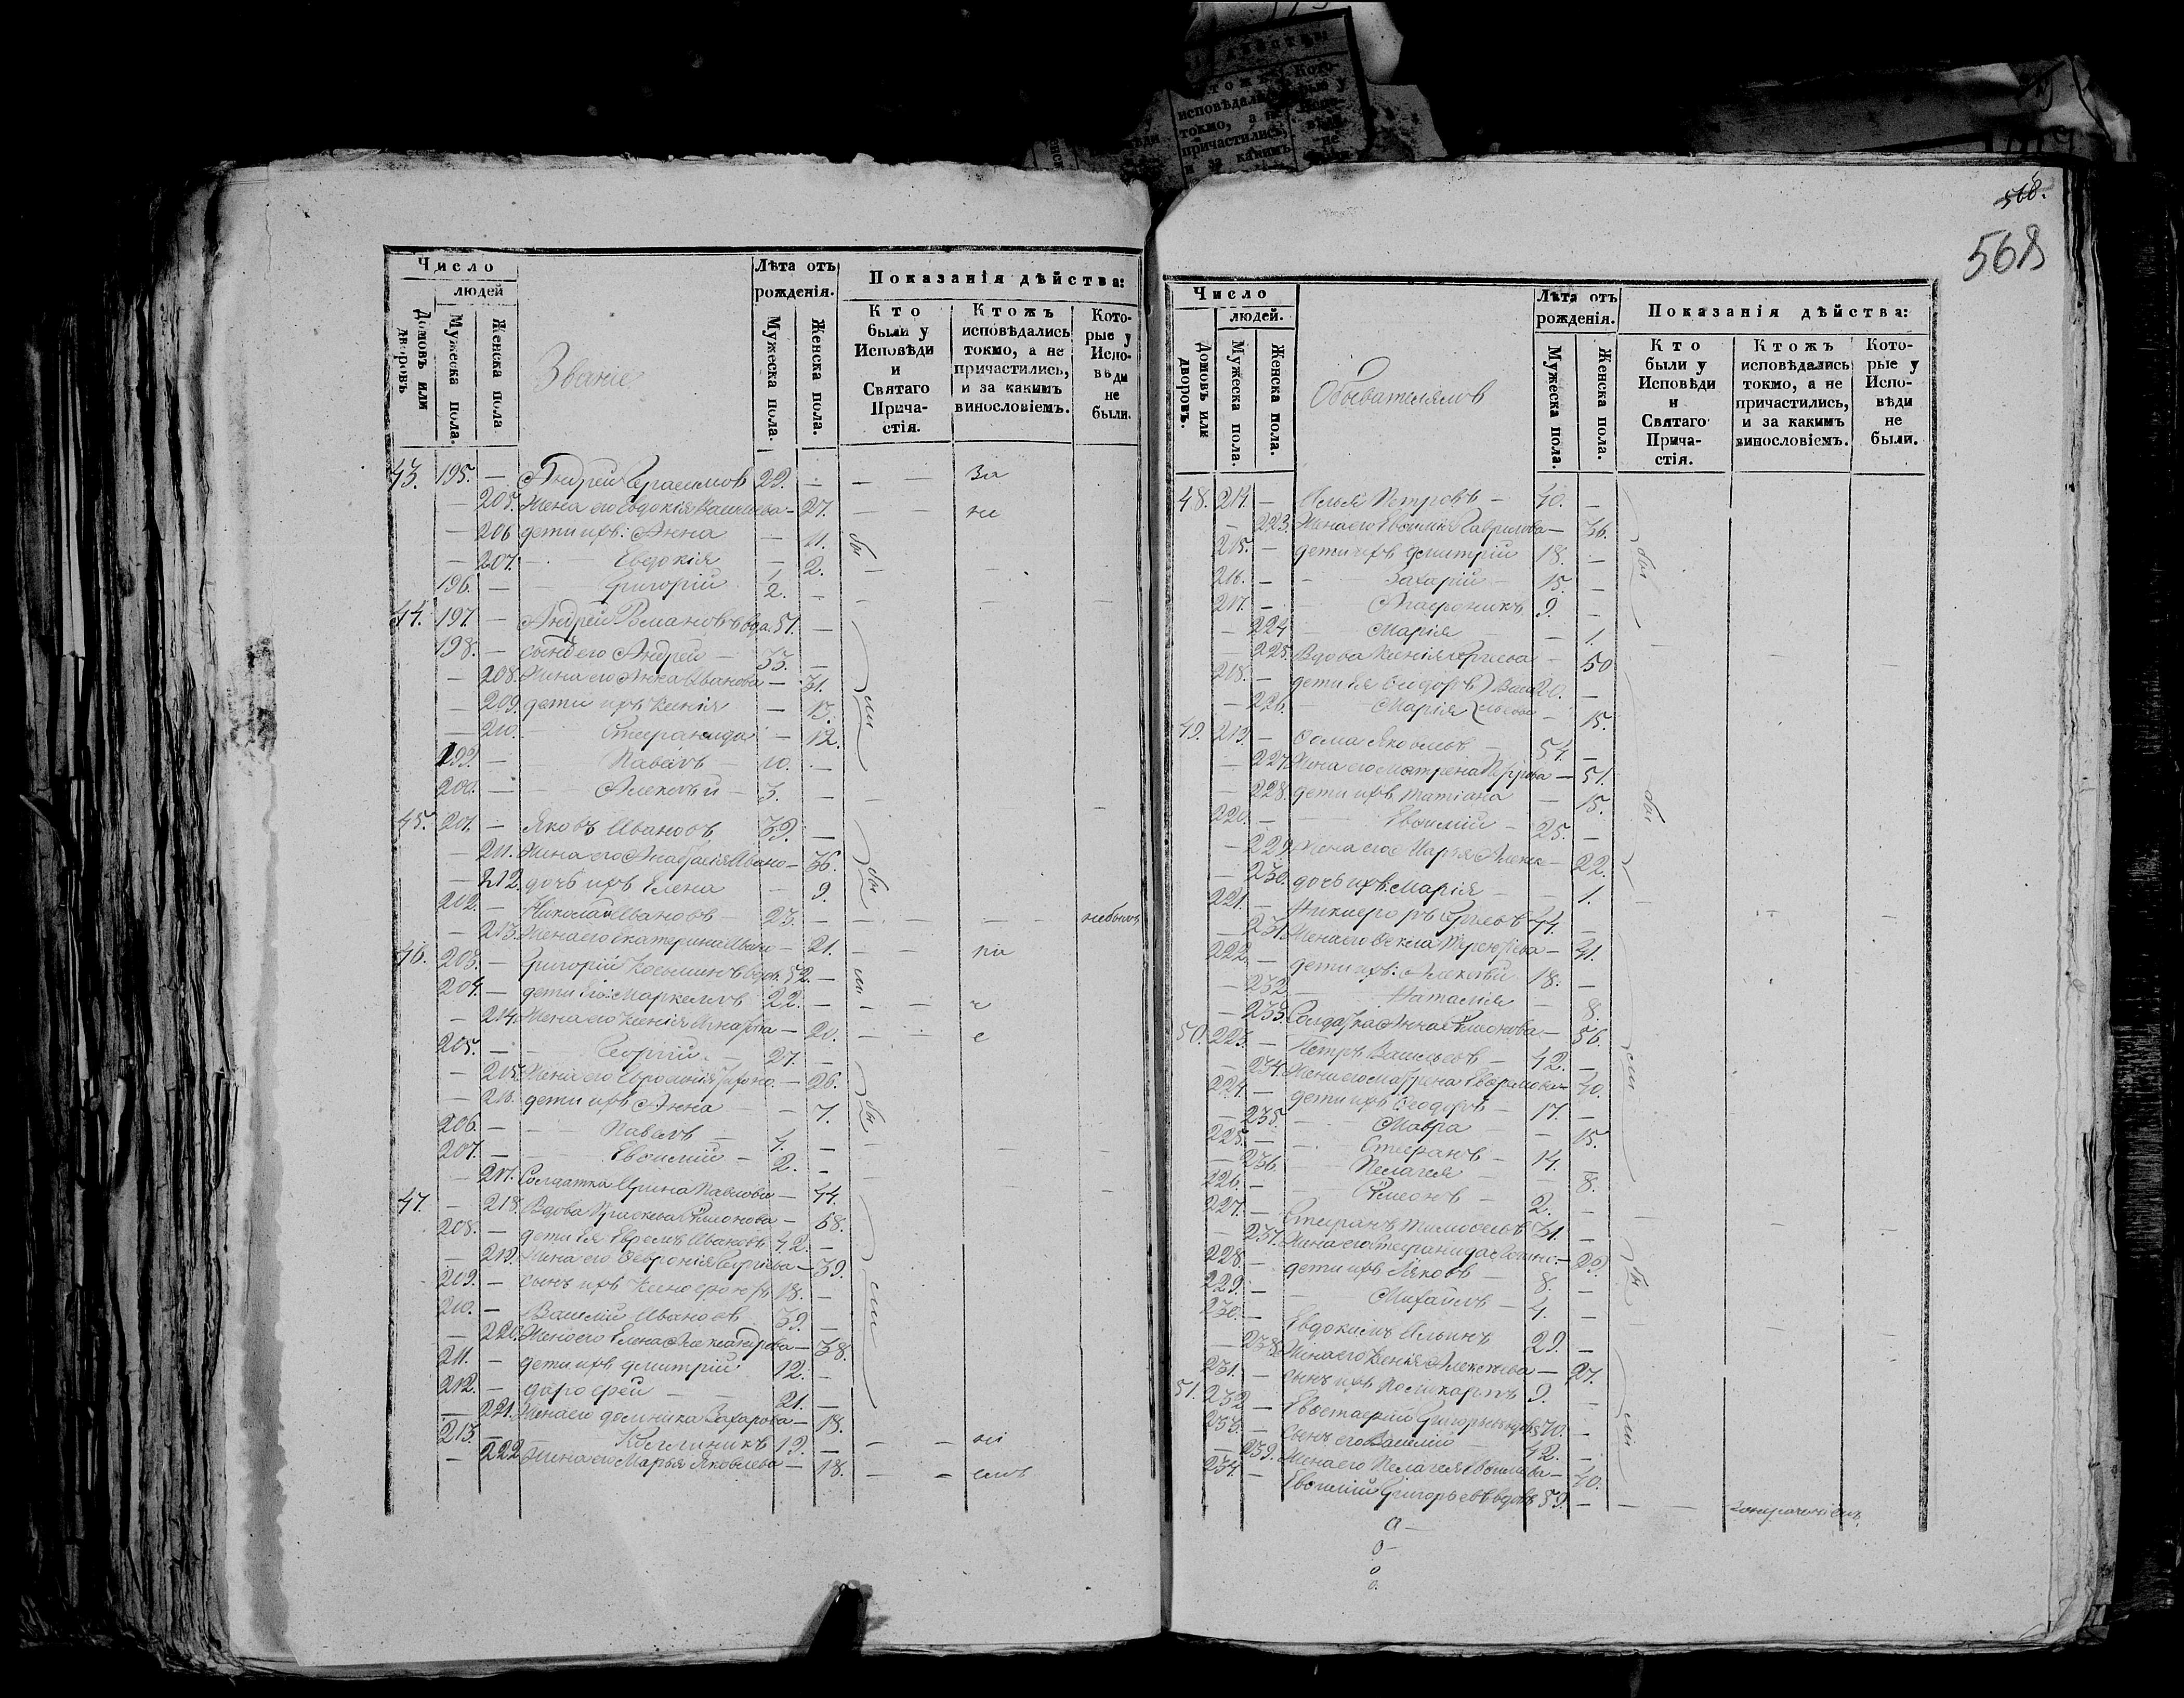 Число
людей
Домовъ или дворовъ
Мужеска пола.
Женска пола
Званіе
Лѣта отъ рожденія.
Мужеска пола.
Женска пола.
Показанія дѣйства:
Кто были у Исповѣди и Святаго Причастія.
Ктожъ исповѣдались токмо, а не причастились, и за какимъ винословіемъ.
Которые у Исповѣди не были.
43. 195. — Андрей Герасимов 29. —
— 205. Жена его Евдокія — 27.
— 206 дети ихъ: Анна — 11.
— 207. Евдокія — 2.
196. — Григорій 1/2. —
44. 197. — Андрей Романовъ вдов. 51. —
198. — сынъ его Андрей — 33. —
— 208. Жена его Анна Иванова — 31.
— 209. дети ихъ Ксенія — 13.
— 210. Стефанида — 12.
199. — Павелъ — 10. —
200. — Алексѣй — 3. —
45. 201. — Яковъ Ивановъ 39. —
— 211. Жена его Анастасія Ивано — 36.
— 212. дочь ихъ Елена — 9.
202. — Николай Ивановъ — 23. — небылъ
— 213. Жена его Екатерина — 21.
46. 203. — Григорій Косьминъ вдов. 52. —
204. — дети его: Маркеллъ 22. —
— 214. Жена его Ксенія — 20.
205. — Георгій — 27. —
— 215. Жена его — 26.
— 216. дети ихъ Анна — 7.
206. — Павелъ — 4. —
207. — Евѳимій — 2. —
— 217. Солдатка Ирина Павлова — 44.
47. — 218. Вдова Симонова — 68.
208. — дети ея Ефремъ Ивановъ 42. —
— 219. Жена его Февронія Сергіева — 39.
209. — сынъ ихъ Ксенофонтъ 18. —
210. — Василій Ивановъ 39. —
— 220. Жена его Елена Александрова — 38.
211. — дети ихъ Димитрій 12. —
212. — Дорофей — 21. —
— 221. Жена его Домника Захарова — 18.
213. — Каллиникъ 19. —
— 222 Жена его Марья Яковлева — 18.
568.
568
Число
людей.
Домовъ или дворовъ.
Мужеска пола.
Женска пола.
Обывателямъ
Лѣта отъ рожденія.
Мужеска пола.
Женска пола.
Показанія дѣйства:
Кто были у Исповѣди и Святаго Причастія.
Ктожъ исповѣдались токмо, а не причастились, и за какимъ винословіемъ.
Которые у Исповѣди не были.
48. 214. — Илья Петровъ — 40. —
— 223. Жена его Гаврилова — 36.
215. — дети ихъ Димитрій 18. —
216. — Захарій — 15. —
217. — Агаѳоникъ 9. —
— 224 Марія — 1.
— 225. Вдова Ксенія — 50
218. — дети ея Сидоръ 20. —
— 226. Марія — 15.
49. 219. — Ѳома Яковлевъ — 54. —
— 227. Жена его Матрена — 51.
— 228. дети ихъ Татіана — 15.
220. — Евѳимій — 25. —
— 229. Жена его Марья — 22.
— 230. дочь ихъ Марія — 1.
221. — Никифоръ Сергѣевъ 44. —
— 231. Жена его Ѳекла Терентіева — 41.
222. — дети ихъ: Алексѣй 18. —
— 232 Наталія — 8.
— 233. Солдатка Анна Симонова — 56.
50. 223. — Петръ Васильевъ — 42. —
— 234. Жена его Матрена — 40.
224. — дети ихъ Ѳеодоръ — 17. —
— 235. Мавра — 15.
225. — Стефанъ — 14. —
— 236. Пелагея — 8.
226. — Симеонъ — 2. —
227. — Стефанъ Тимоѳеевъ 31. —
— 237. Жена его Стефанида — 29
228. — дети ихъ Яковъ — 8. —
229. — Михаилъ — 4. —
230. — Евдокимъ Ильинъ 29. —
— 238. Жена его Ксенія Алексѣева — 27.
231. — сынъ ихъ Поликарпъ 9. —
51. 232 — Евстафій Григорьевъ вдовъ 70. —
233. — Сынъ его Василій — 42. —
— 239. Жена его Пелагея — 40.
234. — Евѳимій Григорьевъ вдовъ 59. —